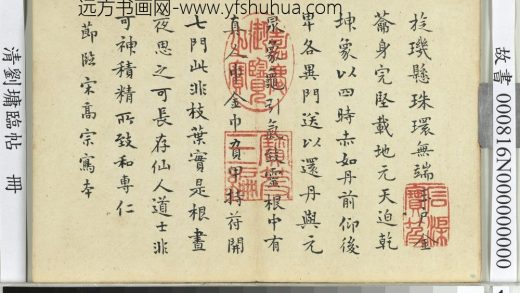 远方书画网-www.yfshuhua.com
故書000816N000000000
旋璣懸珠環無端玉戶金
籥身完堅載地元天迫乾
坤象以四時赤如丹前仰後
卑各異門送以還丹與元
泉象龜引氣致靈根中有
真人巾金巾負甲持符開
七門此非枝葉實是根晝
夜思之可長存仙人道士非
可神積精所致和專仁
節臨宋高宗寫本
石渠寶笈
清劉墉臨帖 冊